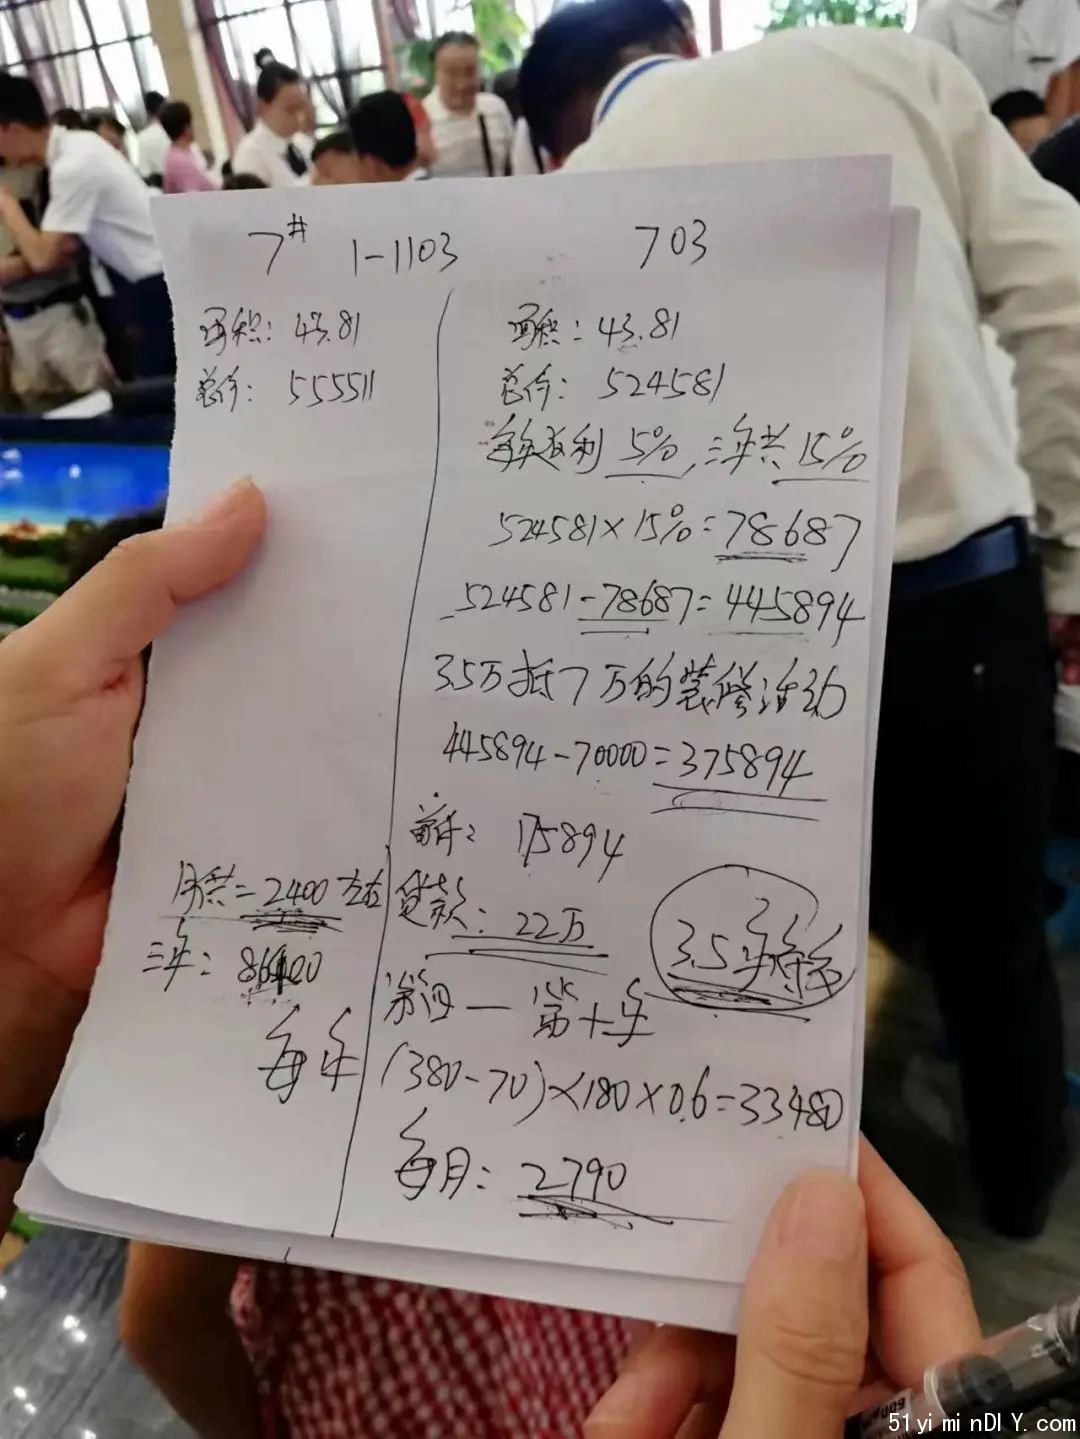 7# 1-1103 703
面积: 43.81
总价: 555511
面积: 43.81
总价: 524581
每年返利 5%, 三年共 15%
524581×15%=78687
524581-78687=445894
3.5万抵7万的装修活动
445894-70000=375894
首付: 175894
月供=2400左右
三年: 86400
贷款: 22万
3.5年
第四一第十年
每年 (380-70)×180×0.6=33480
每月: 2790
51yiminDIY.com